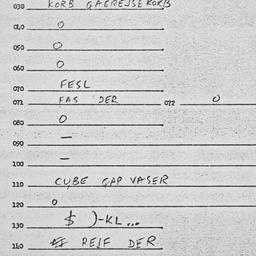 030 KORB GAGREJSEKORB
040 O
050 O
060 O
070 FESL
071 FAS DER 072 O
080 O
090 —
100 —
110 CUBE GAP VASER
120 O
130 $ )-KL...
140 REIF DER